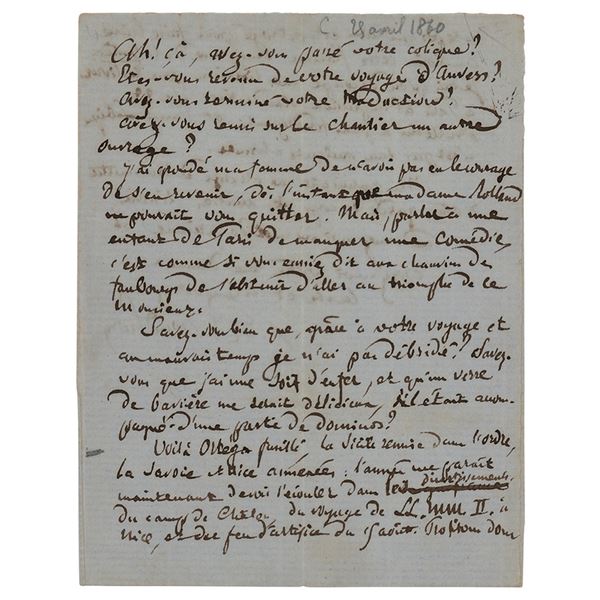 C. 28 avril 1860
Ah! çà, avez-vous passé votre colique?
Etes-vous revenu de votre voyage d'Anvers?
Avez-vous terminé votre traduction?
avez-vous remis sur le chantier un autre
ouvrage?
J'ai grondé ma femme de n'avoir pas eu le courage
de s'en revenir, dès l'instant que madame Rolland
ne pouvait vous quitter. Mais, parler à une
enfant de Paris de manquer une comédie,
c'est comme si vous aviez dit aux chauvins des
faubourgs de s'abstenir d'aller au triomphe de ce
Monsieur.
Savez-vous bien que, grâce à votre voyage et
au mauvais temps je n'ai pas débridé? Savez-
vous que j'ai une soif d'enfer, et qu'un verre
de bavière me serait délicieux, s'il était accom-
pagné d'une partie de dominos?
Voilà Ortega fusillé, la Sicile remise dans l'ordre,
la Savoie et Nice annexées: l'année me paraît
maintenant devoir s'écouler dans les divertissements
du camp de Châlons, du voyage de LL. MM. II. à
Nice, et des feu d'artifice du 15 août. Profitons donc